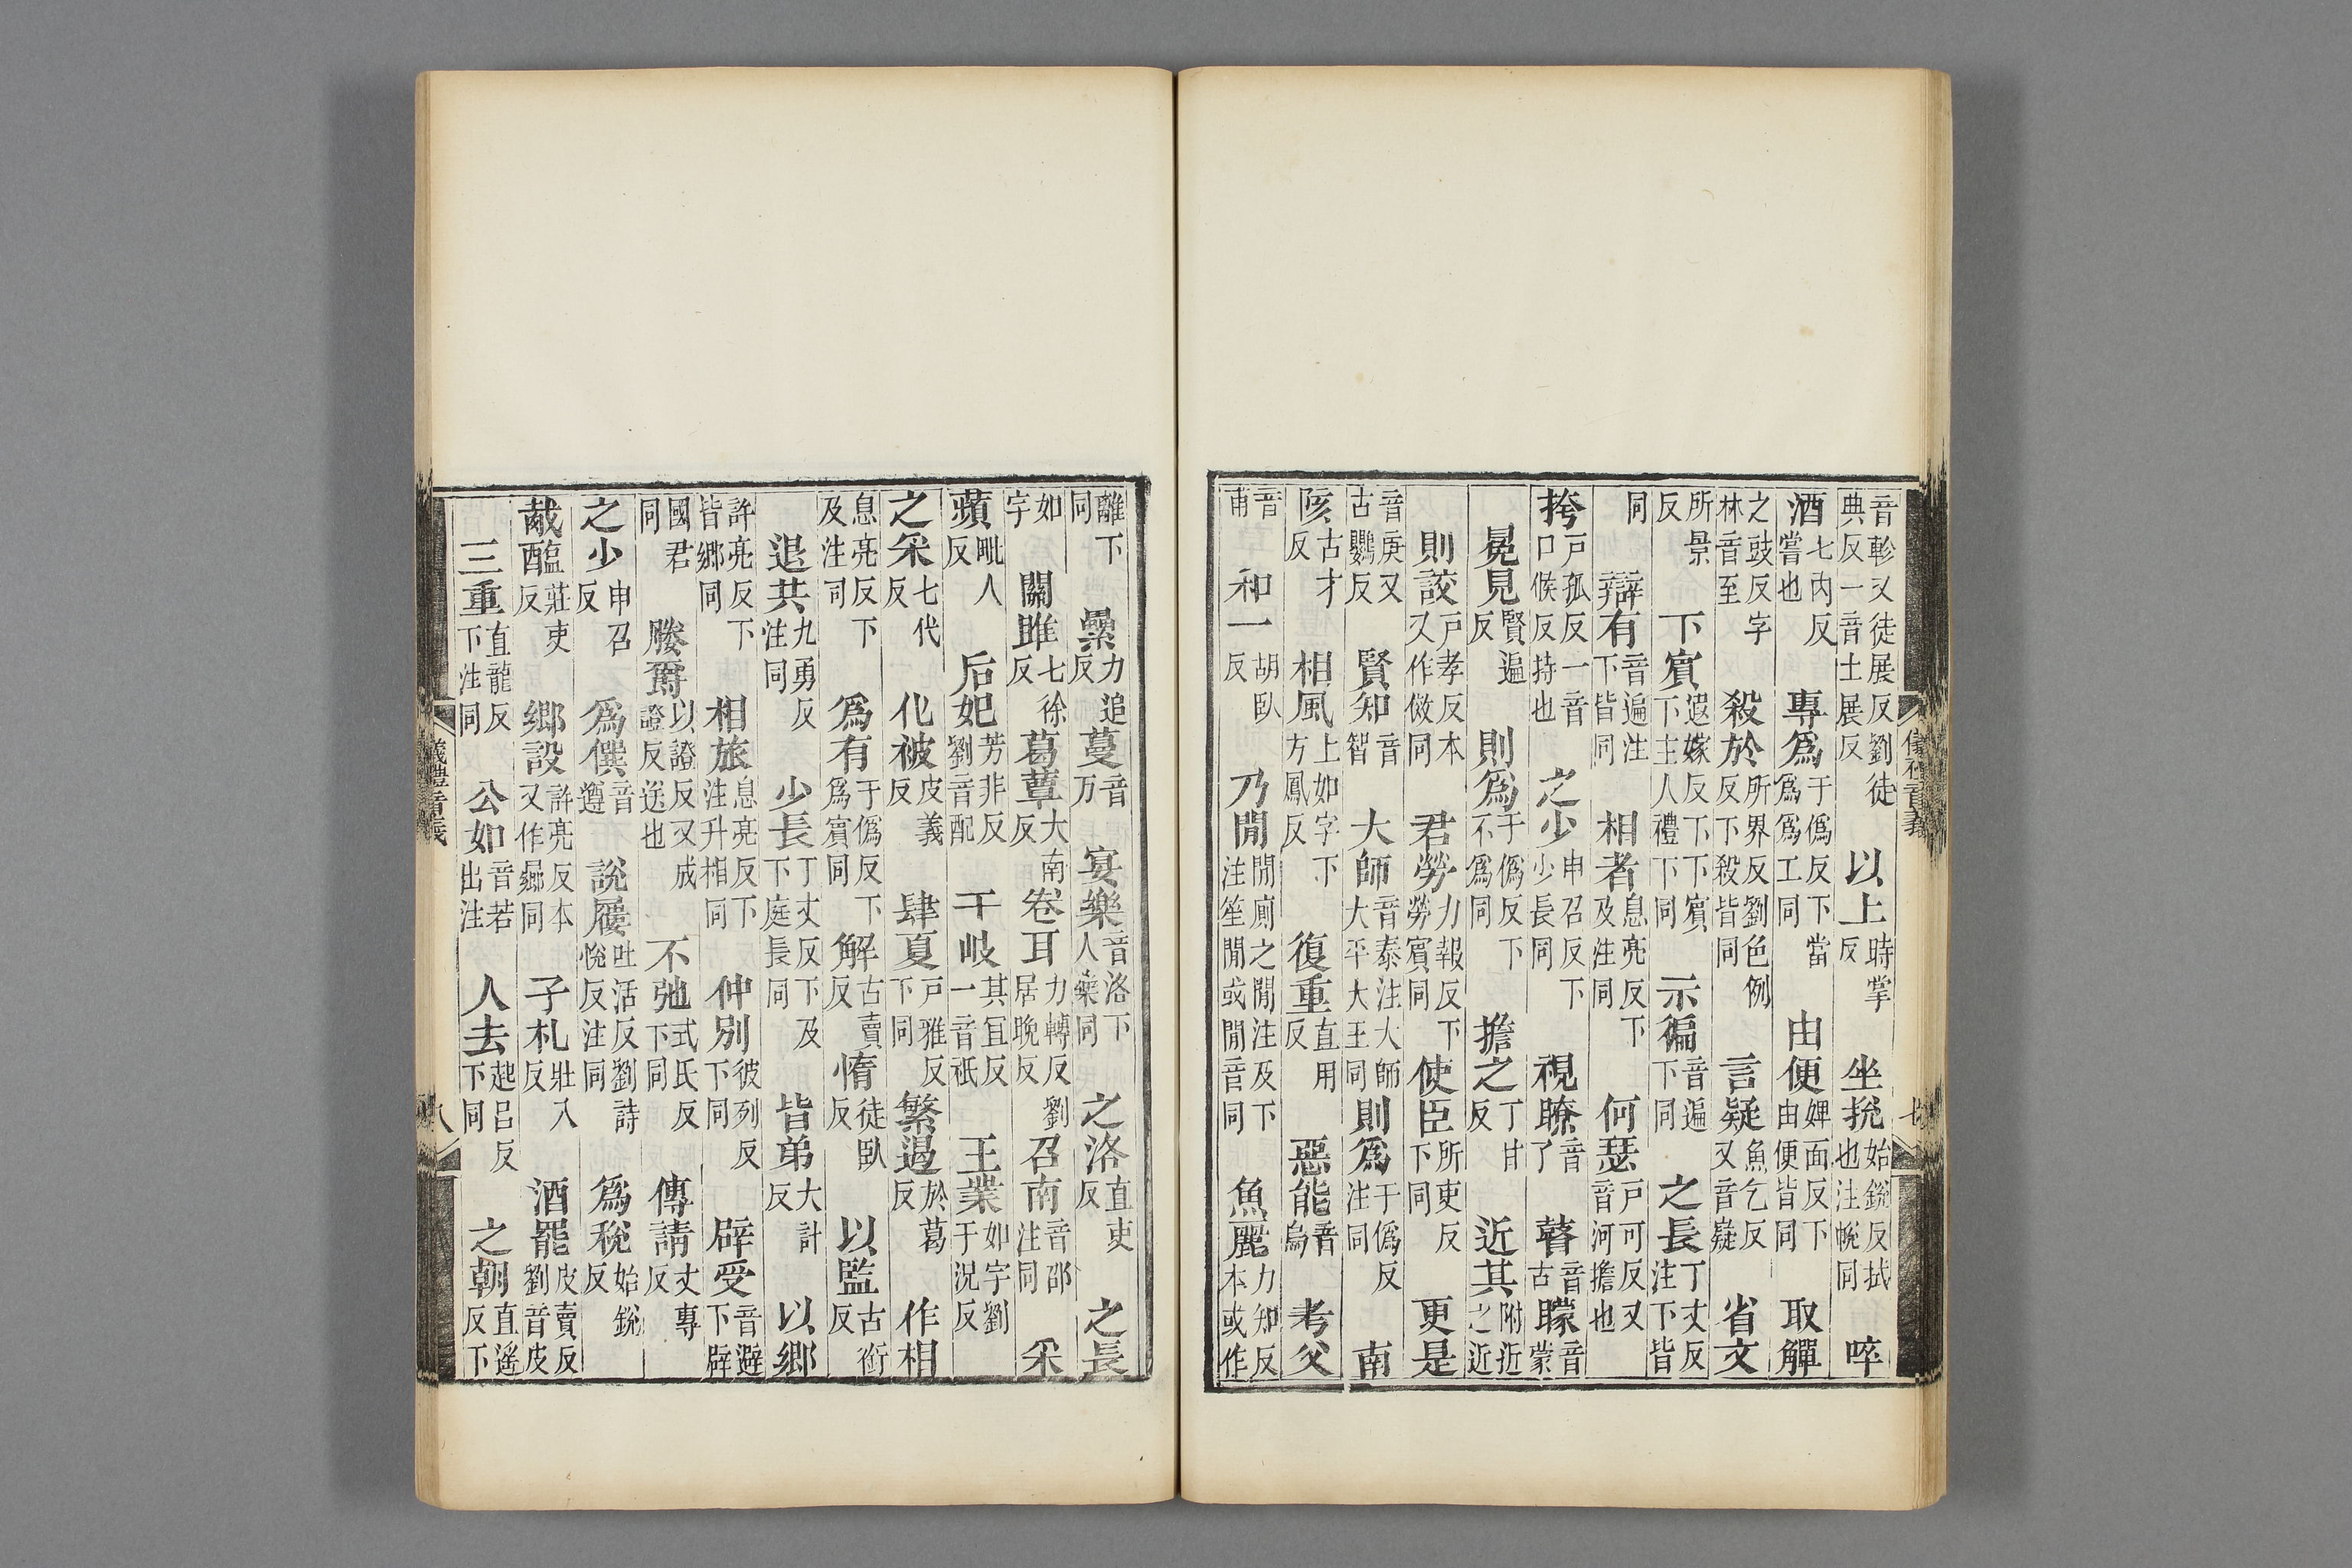 音軫又徒展反劉徒典反一音土展反 以上時掌反 坐挩始銳反拭也注帨同 啐
酒七內反嘗也 專爲于僞反下當爲爲工同 由便婢面反下由便皆同 取觶
之豉反字林音至 殺於所界反劉色例反下殺皆同 言疑魚乞反又音嶷 省文
所景反 下賓遐嫁反下下賓下主人禮下下同 示徧音遍下同 之長丁丈反注下皆
同 辯有音遍注下皆同 相者息亮反下及注同 何瑟戶可反又音河擔也
挎戶孤反一音口候反持也 之少申召反下少長同 視瞭音了 瞽音古 矇音蒙
晃見賢遍反 則爲于僞反下不爲同 擔之丁甘反 近其附近之近
則詨戶孝反本又作傚同 君勞力報反下勞賓同 使臣所吏反下同 更是
音庚又古鸚反 賢知音智 大師音泰注大師大平大王同 則爲于僞反注同 南
陔古才反 相風上如字下方鳳反 復重直用反 惡能音烏 考父
音甫 和一胡臥反 乃閒閒廁之閒注及下注笙閒或閒音同 魚麗力知反本或作
離下同 纍力追反 蔓音万 宴樂音洛下人樂同 之洛直吏反 之長
如字 關雎七徐反 葛蕈大南反 卷耳力轉反劉居晚反 召南音邵注同 采
蘋毗人反 后妃芳非反劉音配 干岐其宜反一音祇 王業如字劉于況反
之采七代反 化被皮義反 肆夏戶雅反下同 繁遏於葛反 作相
息亮反下及注同 爲有于僞反下爲賓同 解古賣反 惰徒臥反 以監古銜反
退共九勇反注同 少長丁丈反下及下庭長同 皆弟大計反 以鄉
許亮反下皆鄉同 相旅息亮反下注升相同 仲別彼列反下同 辟受音避下辟
國君同 媵爵以證反又成證反送也 不弛式氏反下同 傳請丈專反
之少申召反 爲僎音遵 說屨吐活反劉詩悅反注同 爲稅始銳反
胾醢莊吏反 鄉設許亮反本又作曏同 子札壯八反 酒罷皮賣反劉音皮
三重直龍反下注同 公如音若出注 人去起呂反下同 之朝直遙反下
儀禮音義 七
儀禮音義 八